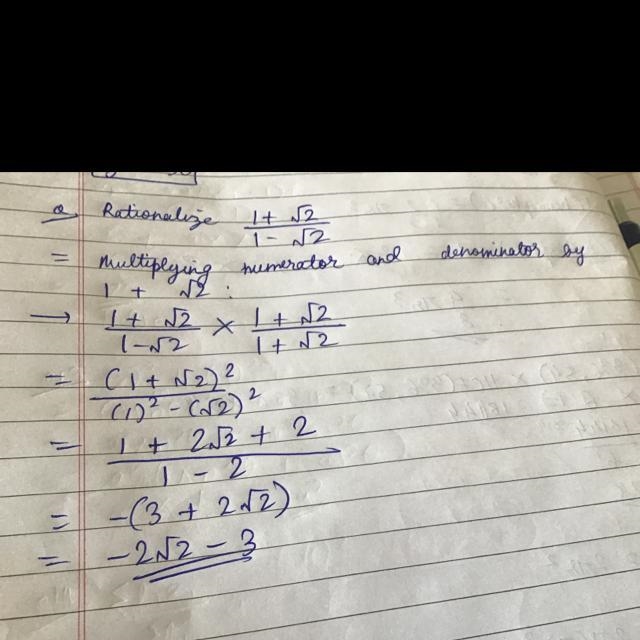 Q Rationalize (1 + √2)/(1 - √2)
= Multiplying numerator and denominator by
1 + √2 :
→ (1 + √2)/(1 - √2) × (1 + √2)/(1 + √2)
= (1 + √2)²/((1)² - (√2)²)
= (1 + 2√2 + 2)/(1 - 2)
= -(3 + 2√2)
= -2√2 - 3